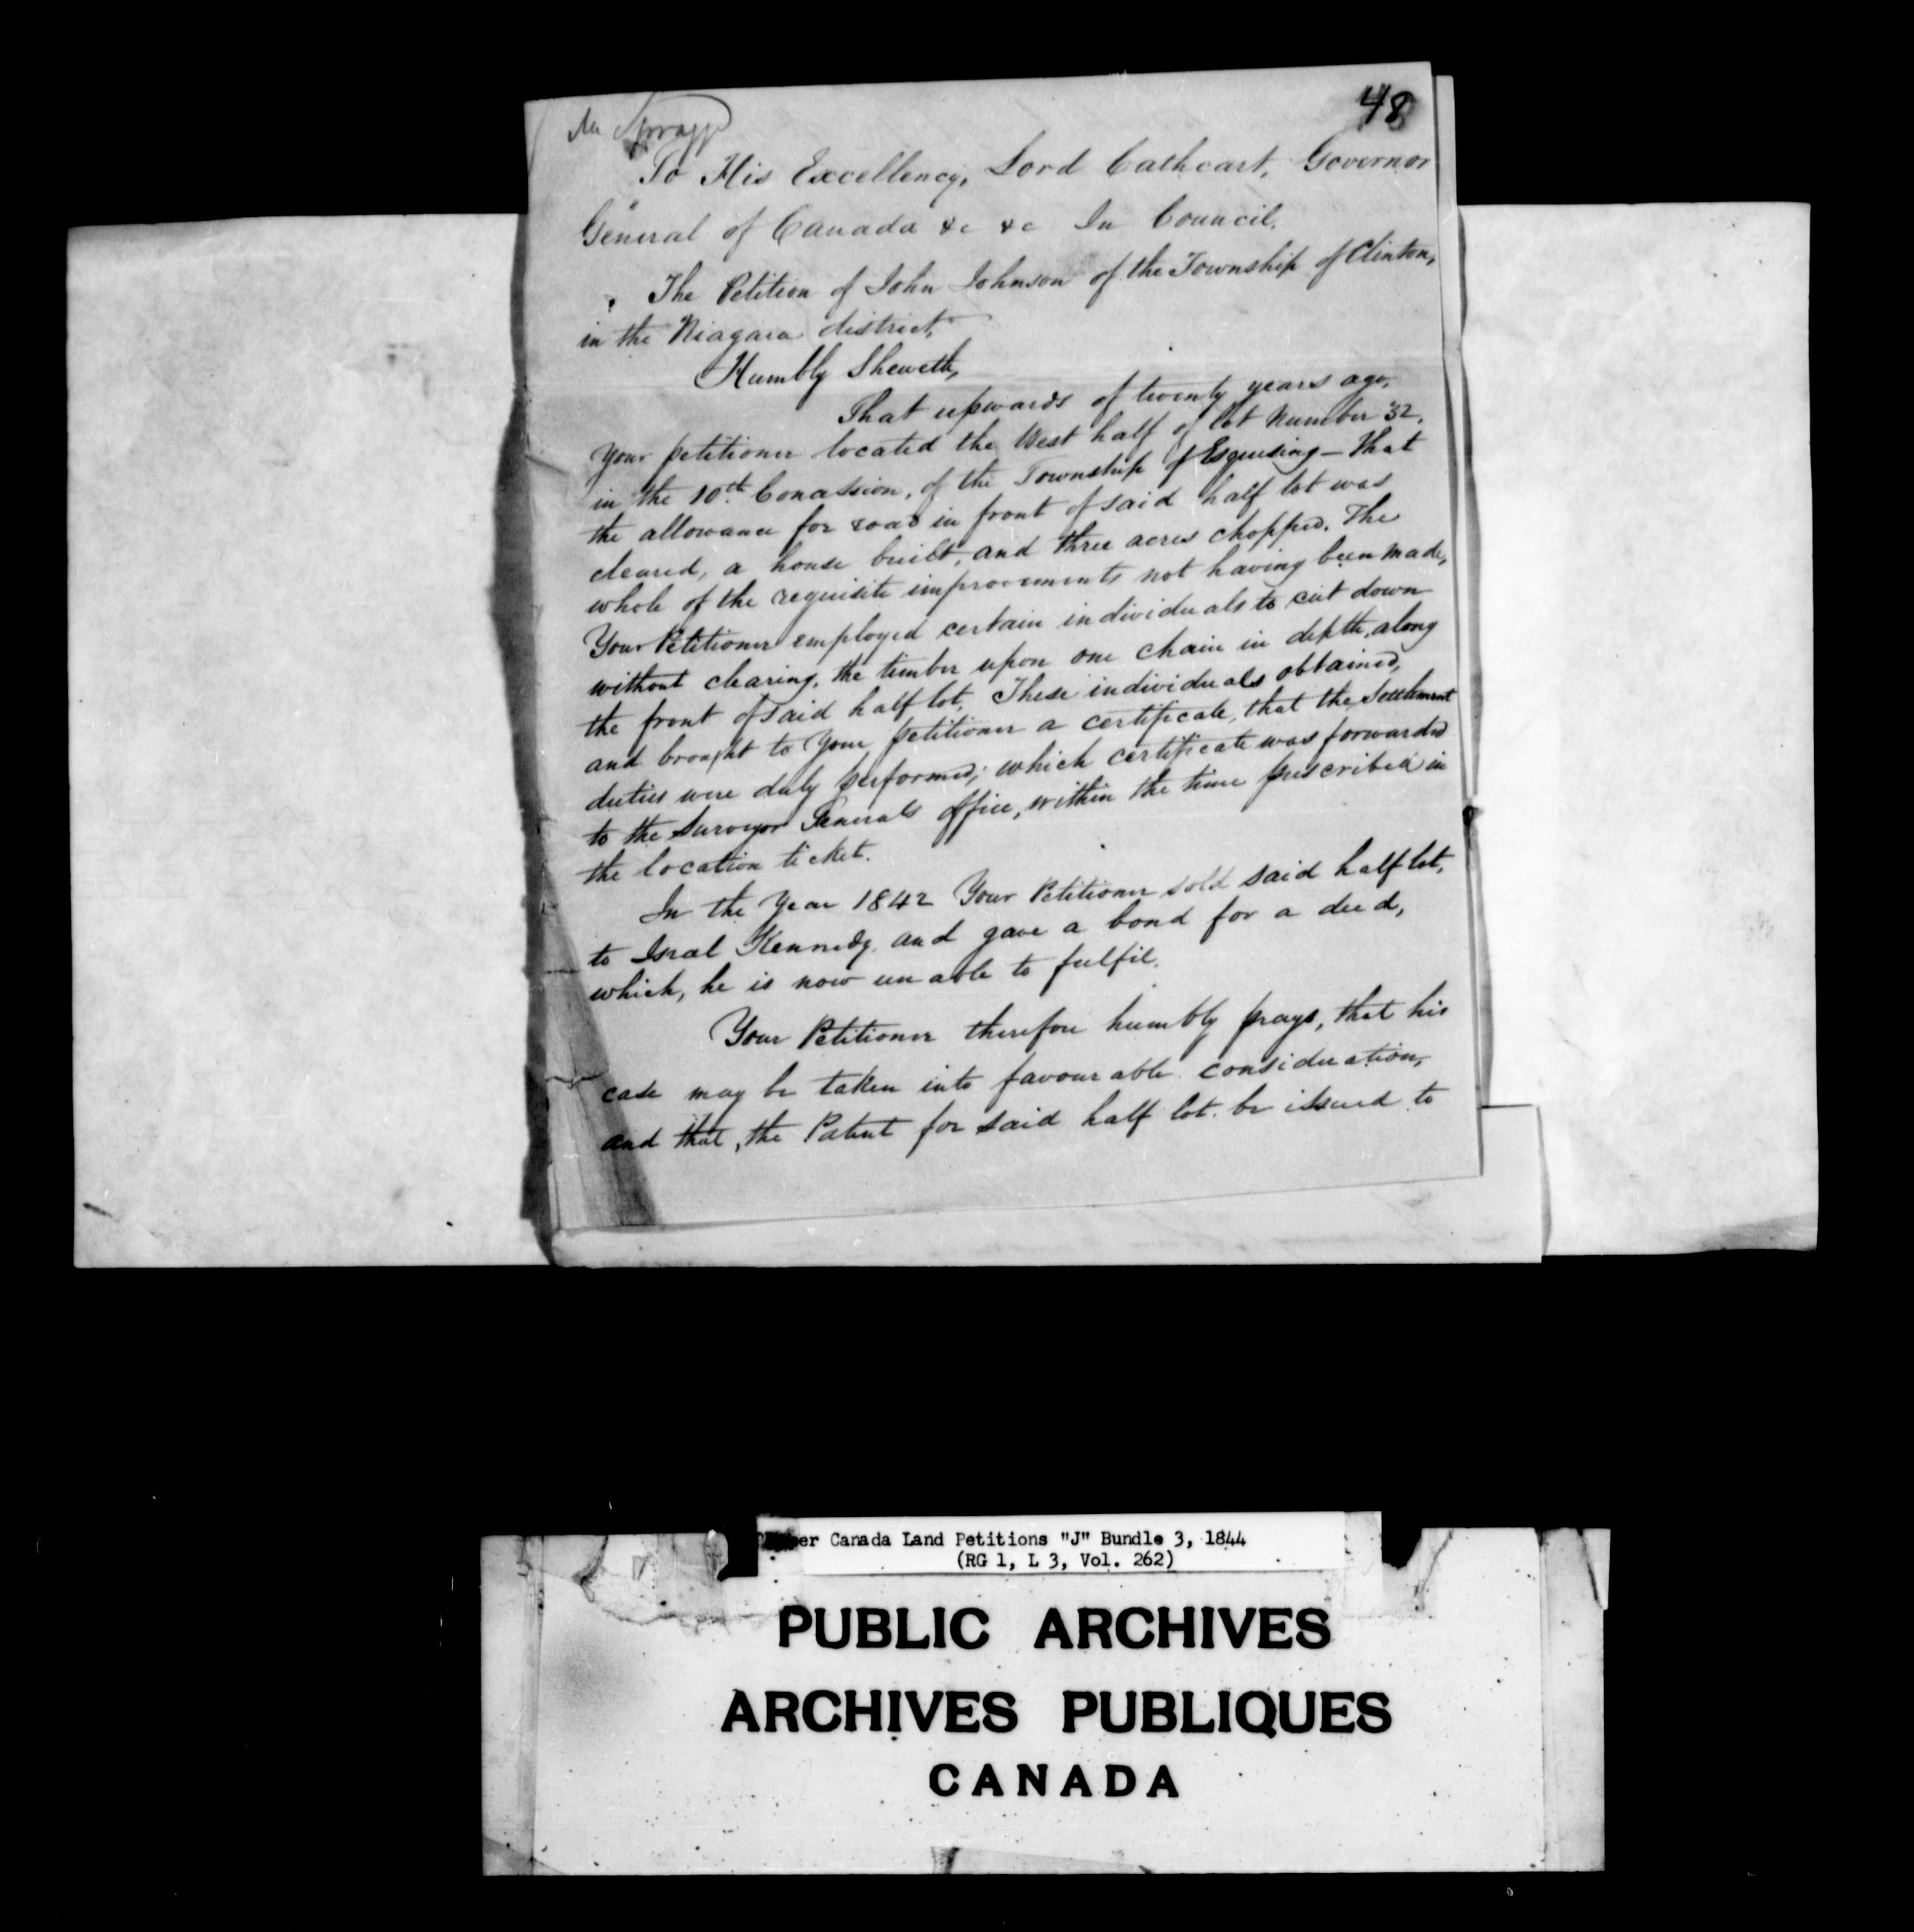 48
Mr Spragge
To His Excellency, Lord Cathcart, Governor
General of Canada &c &c In Council.
The Petition of John Johnson of the Township of Clinton,
in the Niagara district,
Humbly Sheweth,
That upwards of twenty years ago,
Your petitioner located the West half of lot Number 32,
in the 10th Concession, of the Township of Esquesing - That
the allowance for road in front of said half lot was
cleared, a house built, and three acres chopped. The
whole of the requisite improvements not having been made,
Your Petitioner employed certain individuals to cut down
without clearing, the timber upon one chain in depth, along
the front of said half lot. These individuals obtained,
and brought to Your petitioner a certificate, that the Settlement
duties were duly performed; which certificate was forwarded
to the Surveyor Generals office, within the time prescribed in
the location ticket.
In the Year 1842 Your Petitioner sold said half lot,
to Isral Kennedy, and gave a bond for a deed,
which, he is now unable to fulfil.
Your Petitioner therefore humbly prays, that his
case may be taken into favourable consideration,
and that, the Patent for said half lot be issued to
er Canada Land Petitions "J" Bundle 3, 1844
(RG 1, L 3, Vol. 262)
PUBLIC ARCHIVES
ARCHIVES PUBLIQUES
CANADA